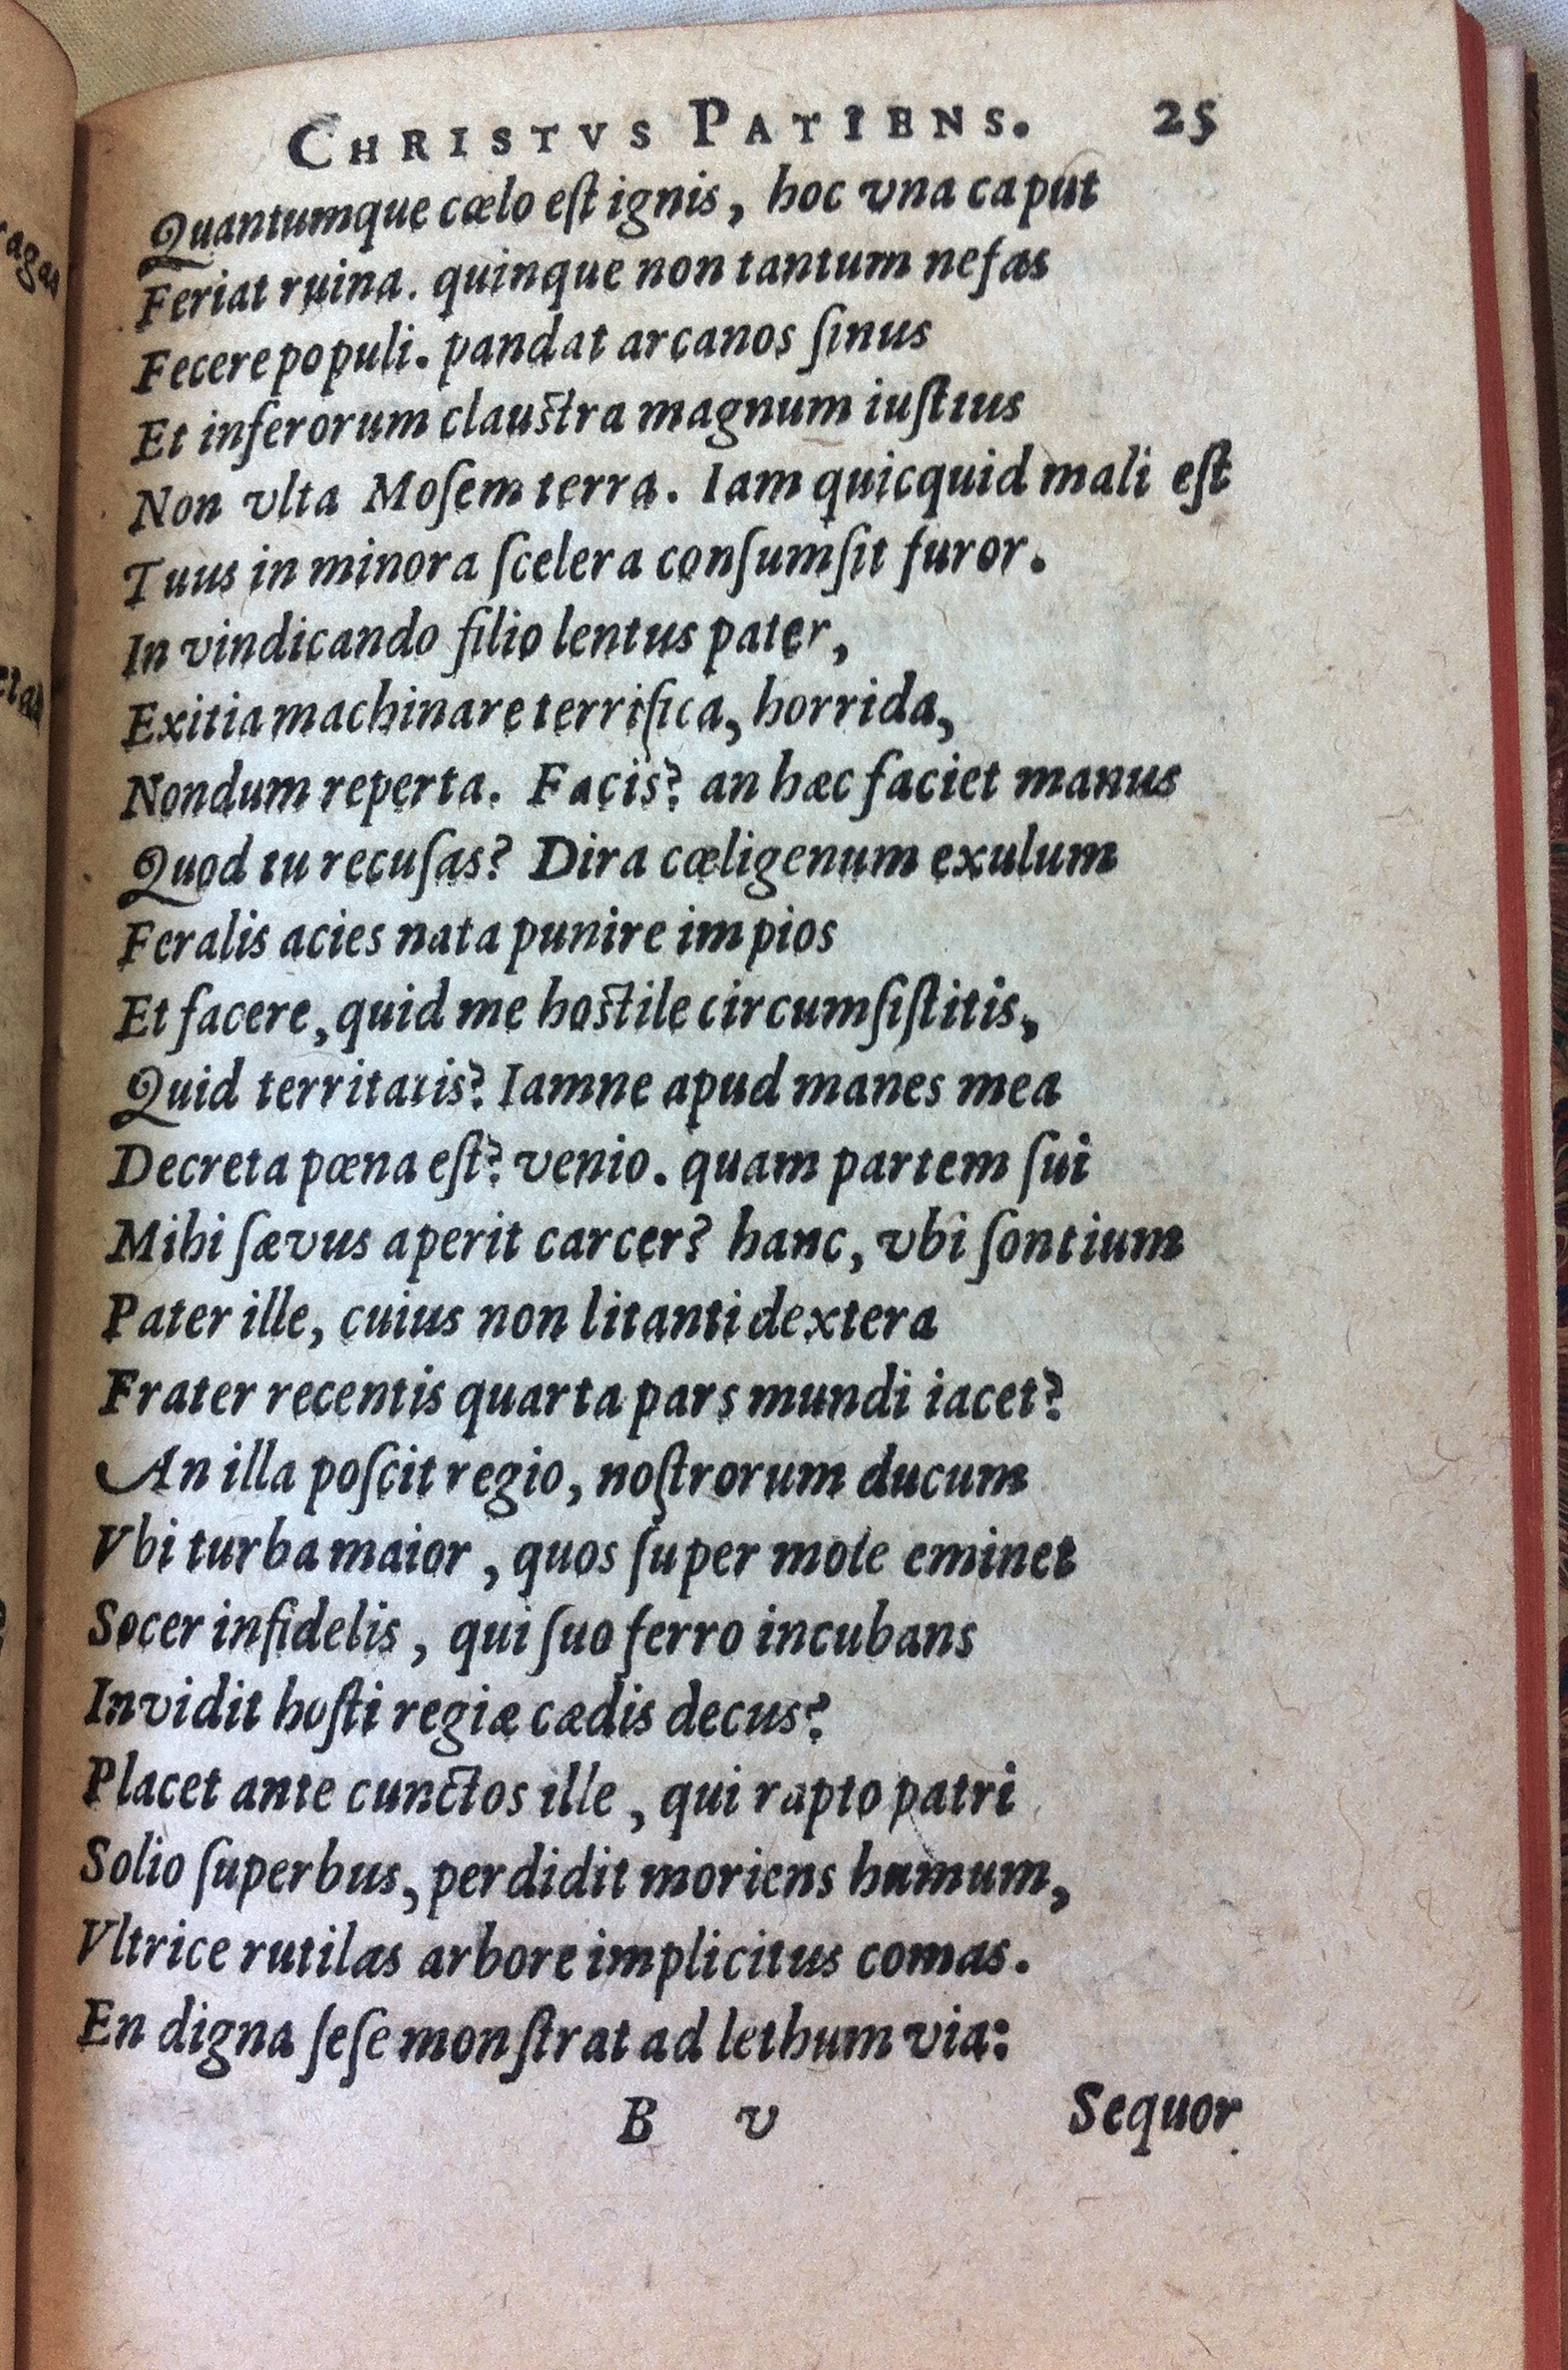 CHRISTVS PATIENS. 25
Quantumque cælo eſt ignis, hoc vna caput
Feriat ruina. quinque non tantum nefas
Fecere populi. pandat arcanos ſinus
Et inferorum clauſtra magnum iuſtius
Non vlta Moſem terra. Iam quicquid mali eſt
Tuus in minora ſcelera conſumſit furor.
In vindicando filio lentus pater,
Exitia machinare terrifica, horrida,
Nondum reperta. Facis? an hæc faciet manus
Quod tu recuſas? Dira cæligenum exulum
Feralis acies nata punire impios
Et facere, quid me hoſtile circumſiſtitis,
Quid territatis? Iamne apud manes mea
Decreta pœna eſt? venio. quam partem ſui
Mihi ſævus aperit carcer? hanc, vbi ſontium
Pater ille, cuius non litanti dextera
Frater recentis quarta pars mundi iacet?
An illa poſcit regio, noſtrorum ducum
Vbi turba maior, quos ſuper mole eminet
Socer infidelis, qui ſuo ferro incubans
Invidit hoſti regiæ cædis decus?
Placet ante cunctos ille, qui rapto patri
Solio ſuperbus, perdidit moriens humum,
Vltrice rutilas arbore implicitus comas.
En digna ſeſe monſtrat ad lethum via:
B v Sequor